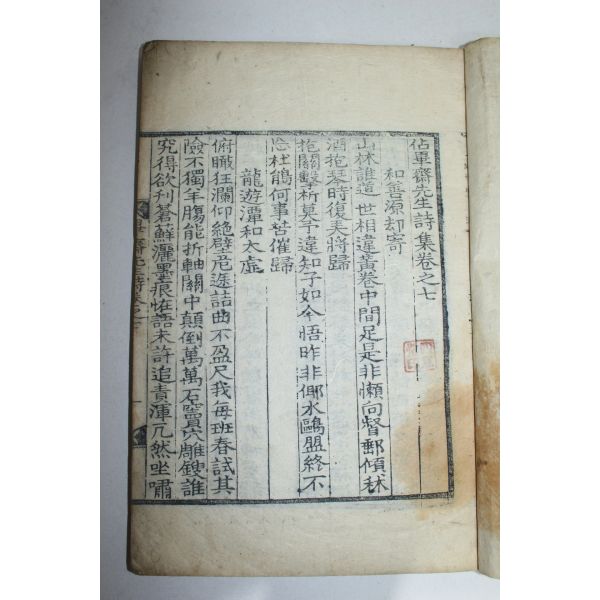 佔畢齋先生詩集卷之七
和善源却寄
山林誰道世相違黃卷中間足是非懶向督郵傾秫
酒抱琴時復美將歸
抱關擊柝莫予違知子如今悟昨非倻水鷗盟終不
杜鵑何事苦催歸
龍遊潭和太虛
俯瞰狂瀾仰絶壁危途詰曲不盈尺我每班春試其
險不獨羊膓能折軸關中顚倒萬萬石竇穴雕鎪誰
究得欲刋蒼蘚灑墨痕恠語未許追責渾兀然坐嘯